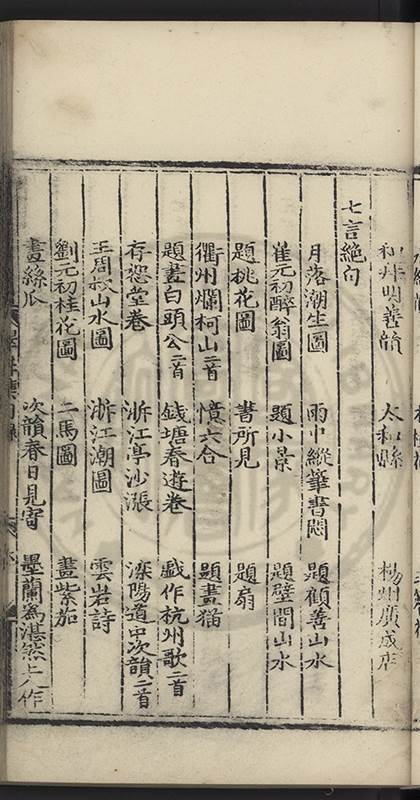 和井明善韻 太和縣 楊州廣成店
七言絶句
月落潮生圖 雨中縱筆書悶 題顧善山水
崔元初醉翁圖 題小景 題壁間山水
題桃花圖 書所見 題扇
衢州爛柯山二首 憤六合 題畫猫
題畫白頭公二首 錢塘春遊卷 戯作杭州歌二首
存恕堂卷 浙江亭沙漲 滦陽道中次韻二首
王周叔山水圖 浙江潮圖 雲岩詩
劉元初桂花圖 二馬圖 畫紫茄
畫絲瓜 次韻春日見寄 墨蘭為湛然上人作